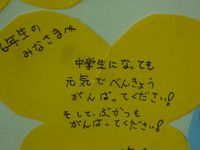 6年生の
みなさまへ
中学生になっても
元気でべんきょう
がんばってください!
そして、ぶかつも
がんばってください!